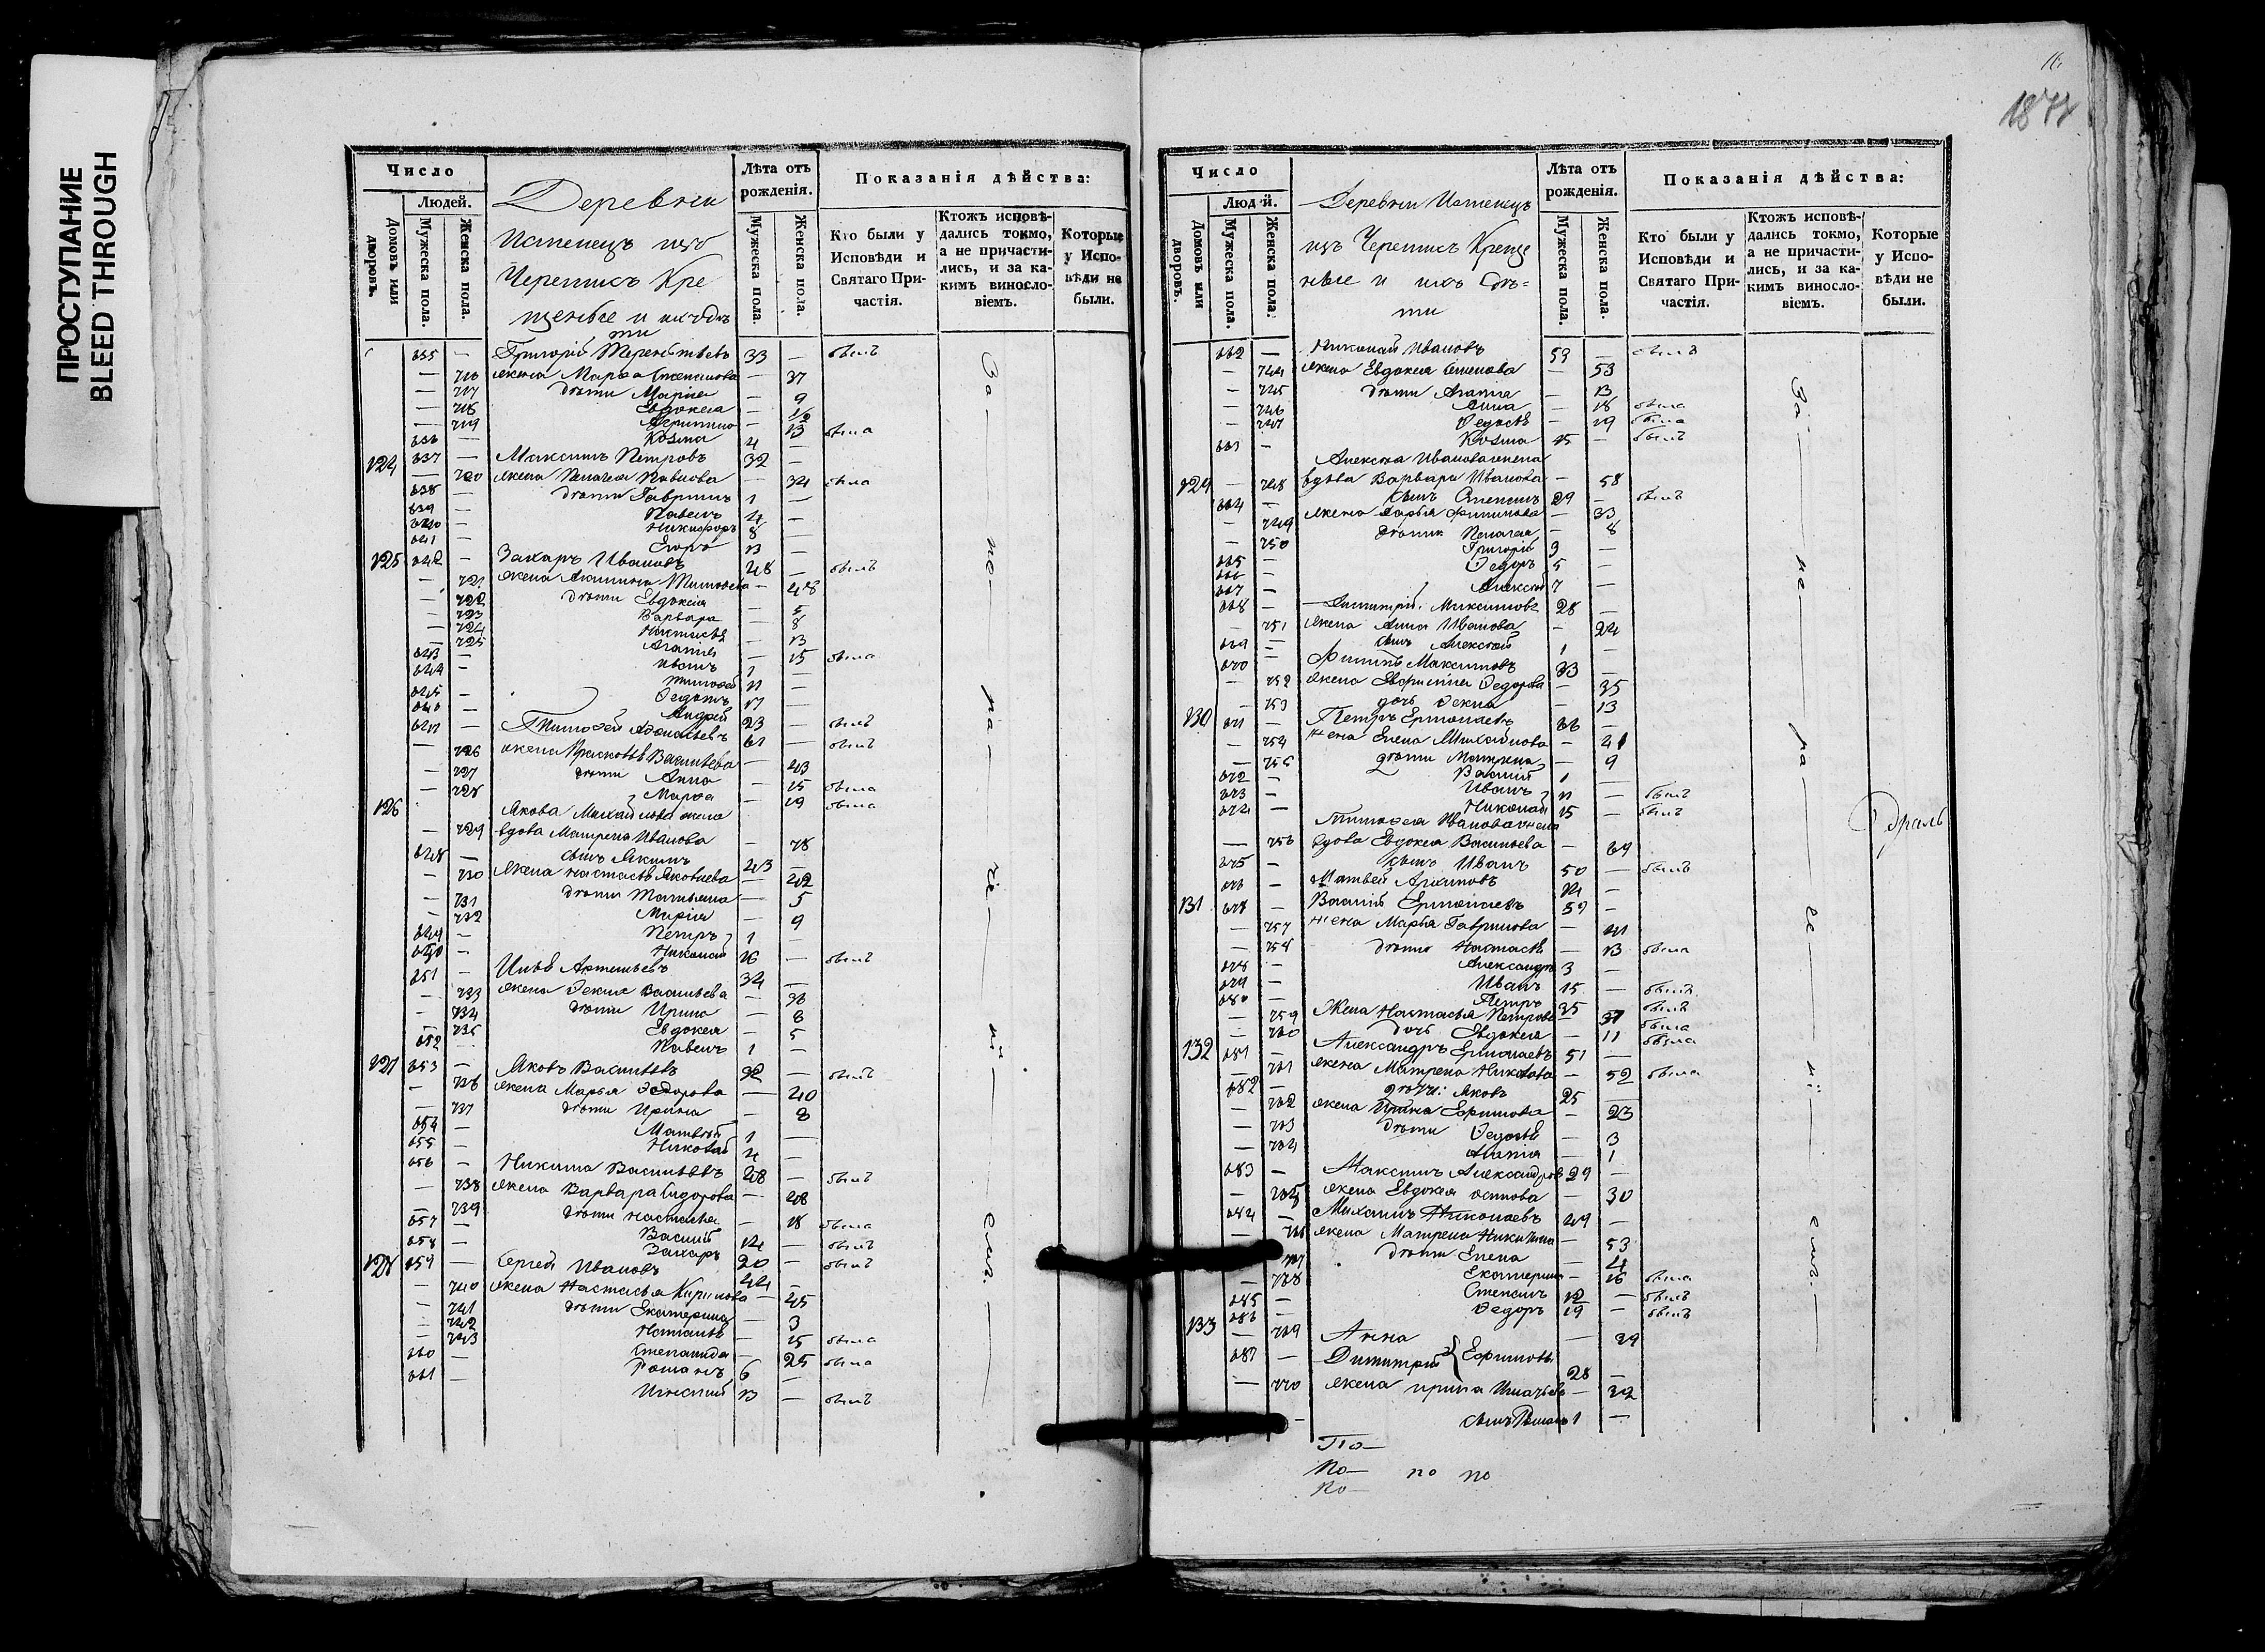 ПРОСТУПАНИЕ
BLEED THROUGH
Число
Людей.
Домовъ или дворовъ.
Мужеска пола.
Женска пола.
Деревни
изъ
Черемисъ Кре
щеные и ихъ дѣ
ти
Лѣта отъ рожденія.
Мужеска пола.
Женска пола.
Показанія дѣйства:
Кто были у Исповѣди и Святаго Причастія.
Ктожъ исповѣдались токмо, а не причастились, и за какимъ винословіемъ.
Которые у Исповѣди не были.
635 — Григорій Терентьевъ 33 — былъ
— 716 жена Марѳа Степанова — 37
— 717 дѣти Марія — 9
— 718 Евдокія —
— 719 — 13 была
636 — Козма 4 —
124 637 — Максимъ Петровъ 32 —
— 720 жена Пелагея Павлова — 34 была
638 — дѣти Гавріилъ 1 —
639 — Павелъ 4 —
640 — Никифоръ 8 —
641 — Егоръ 13 —
125 642 — Захаръ Ивановъ 48 — былъ
— 721 жена Акилина Тимофеева — 48
— 722 дѣти Евдокія — 5
— 723 Варвара — 8
— 724 Настасья — 13
— 725 Агапія — 15 была
643 — Иванъ 1 —
644 — Тимофей 11 —
645 — Федотъ 17 —
646 — Андрей 23 — былъ
647 — Тимофей 61 — былъ
— 726 жена Прасковья Васильева — 43
— 727 дѣти Анна — 15 была
— 728 Марфа — 19 была
126 Якова Михайлова жена
— 729 вдова Матрена Иванова — 78
648 — сынъ Якимъ 43 —
— 730 жена Настасья Яковлева — 42
— 731 дѣти Татьяна — 5
— 732 Марія — 9
649 — Петръ 1 —
650 — Николай 16 — былъ
651 — Илья Артемьевъ 34 —
— 733 жена Фекла Васильева — 36
— 734 дѣти Ирина — 8
— 735 Евдокія — 5
652 — Павелъ 1 —
127 653 — Яковъ Васильевъ 42 — былъ
— 736 жена Марья Федорова — 40
— 737 дѣти Ирина — 8
654 — Матвей 1 —
655 — Николай 4 —
656 — Никита Васильевъ 48 — былъ
— 738 жена Варвара Сидорова — 48
— 739 дѣти Настасья — 18 была
657 — Василій 14 — былъ
658 — Захаръ 20 — былъ
128 659 — Сергей Ивановъ 44 —
— 740 жена Настасья Кирилова — 45
— 741 дѣти Екатерина — 3
— 742 Наталья — 15 была
— 743 Степанида — 25 была
660 — Романъ 6 —
661 — 13 — былъ
За — не — ра — че — ні — емъ —
1877
Число
Людей.
Домовъ или дворовъ.
Мужеска пола.
Женска пола.
Деревни
изъ Черемисъ Креще
ные и ихъ дѣ=
ти
Лѣта отъ рожденія.
Мужеска пола.
Женска пола.
Показанія дѣйства:
Кто были у Исповѣди и Святаго Причастія.
Ктожъ исповѣдались токмо, а не причастились, и за какимъ винословіемъ.
Которые у Исповѣди не были.
662 — Николай Ивановъ 59 — былъ
— 744 жена Евдокія Семенова — 53
— 745 дѣти Агапія — 13
— 746 Анна — 18 была
— 747 Федосья — 19 была
663 — Козма 15 — былъ
Алексея Иванова жена
129 — 748 вдова Варвара Иванова — 58
664 — сынъ Степанъ 29 — былъ
— 749 жена Дарья Филипова — 33
— 750 дѣти Пелагея — 8
665 — Григорій 3 —
666 — Федоръ 5 —
667 — Алексей 7 —
668 — Димитрій Максимовъ 28 —
— 751 жена Анна Иванова — 24
669 — сынъ Алексей 1 —
670 — Филипъ Максимовъ 33 —
— 752 жена Федорова — 35
— 753 дочь Фекла — 13
130 671 — Петръ Ермолаевъ 36 —
— 754 жена Елена Михайлова — 41
— 755 дѣти Матрена — 9
672 — Василій 1
673 — Иванъ 11 — былъ
674 — Николай 15 — былъ
Тимофея Иванова жена
— 756 вдова Евдокія Васильева — 69
675 — сынъ Иванъ 50 — былъ
676 — Матвей Архиповъ 14 —
131 677 — Василій Ермолаевъ 59 —
— 757 жена Марья Гаврилова — 41
— 758 дѣти Настасья — 13 была
678 — Александръ 3 —
679 — Иванъ 15 — былъ
680 — Петръ 35 — былъ
— 759 Жена Настасья Петрова — 37 была
— 760 дочь Евдокія — 11 была
132 681 — Александръ Ермолаевъ 51 —
— 761 жена Матрена — 52 была
682 — дѣти: Яковъ 25 —
— 762 жена Ирина Ефимова — 23
— 763 дѣти Федосья — 3
— 764 Агапія — 1
683 — Максимъ Александровъ 29 —
— 765 жена Евдокія Осипова — 30
684 — Михаилъ Николаевъ 49 —
— жена Матрена Никитина — 53
дѣти Елена — 4
— 768 Екатерина — 16 была
685 — Степанъ 12 — былъ
686 — Федоръ 19 — былъ
133 — 769 Анна — 39
687 — Димитрій Ефимовы 28 —
— 770 жена Ирина — 32
сынъ Романъ 1 —
За — не — ра — че — ні — емъ —
По —
по — по по
по —